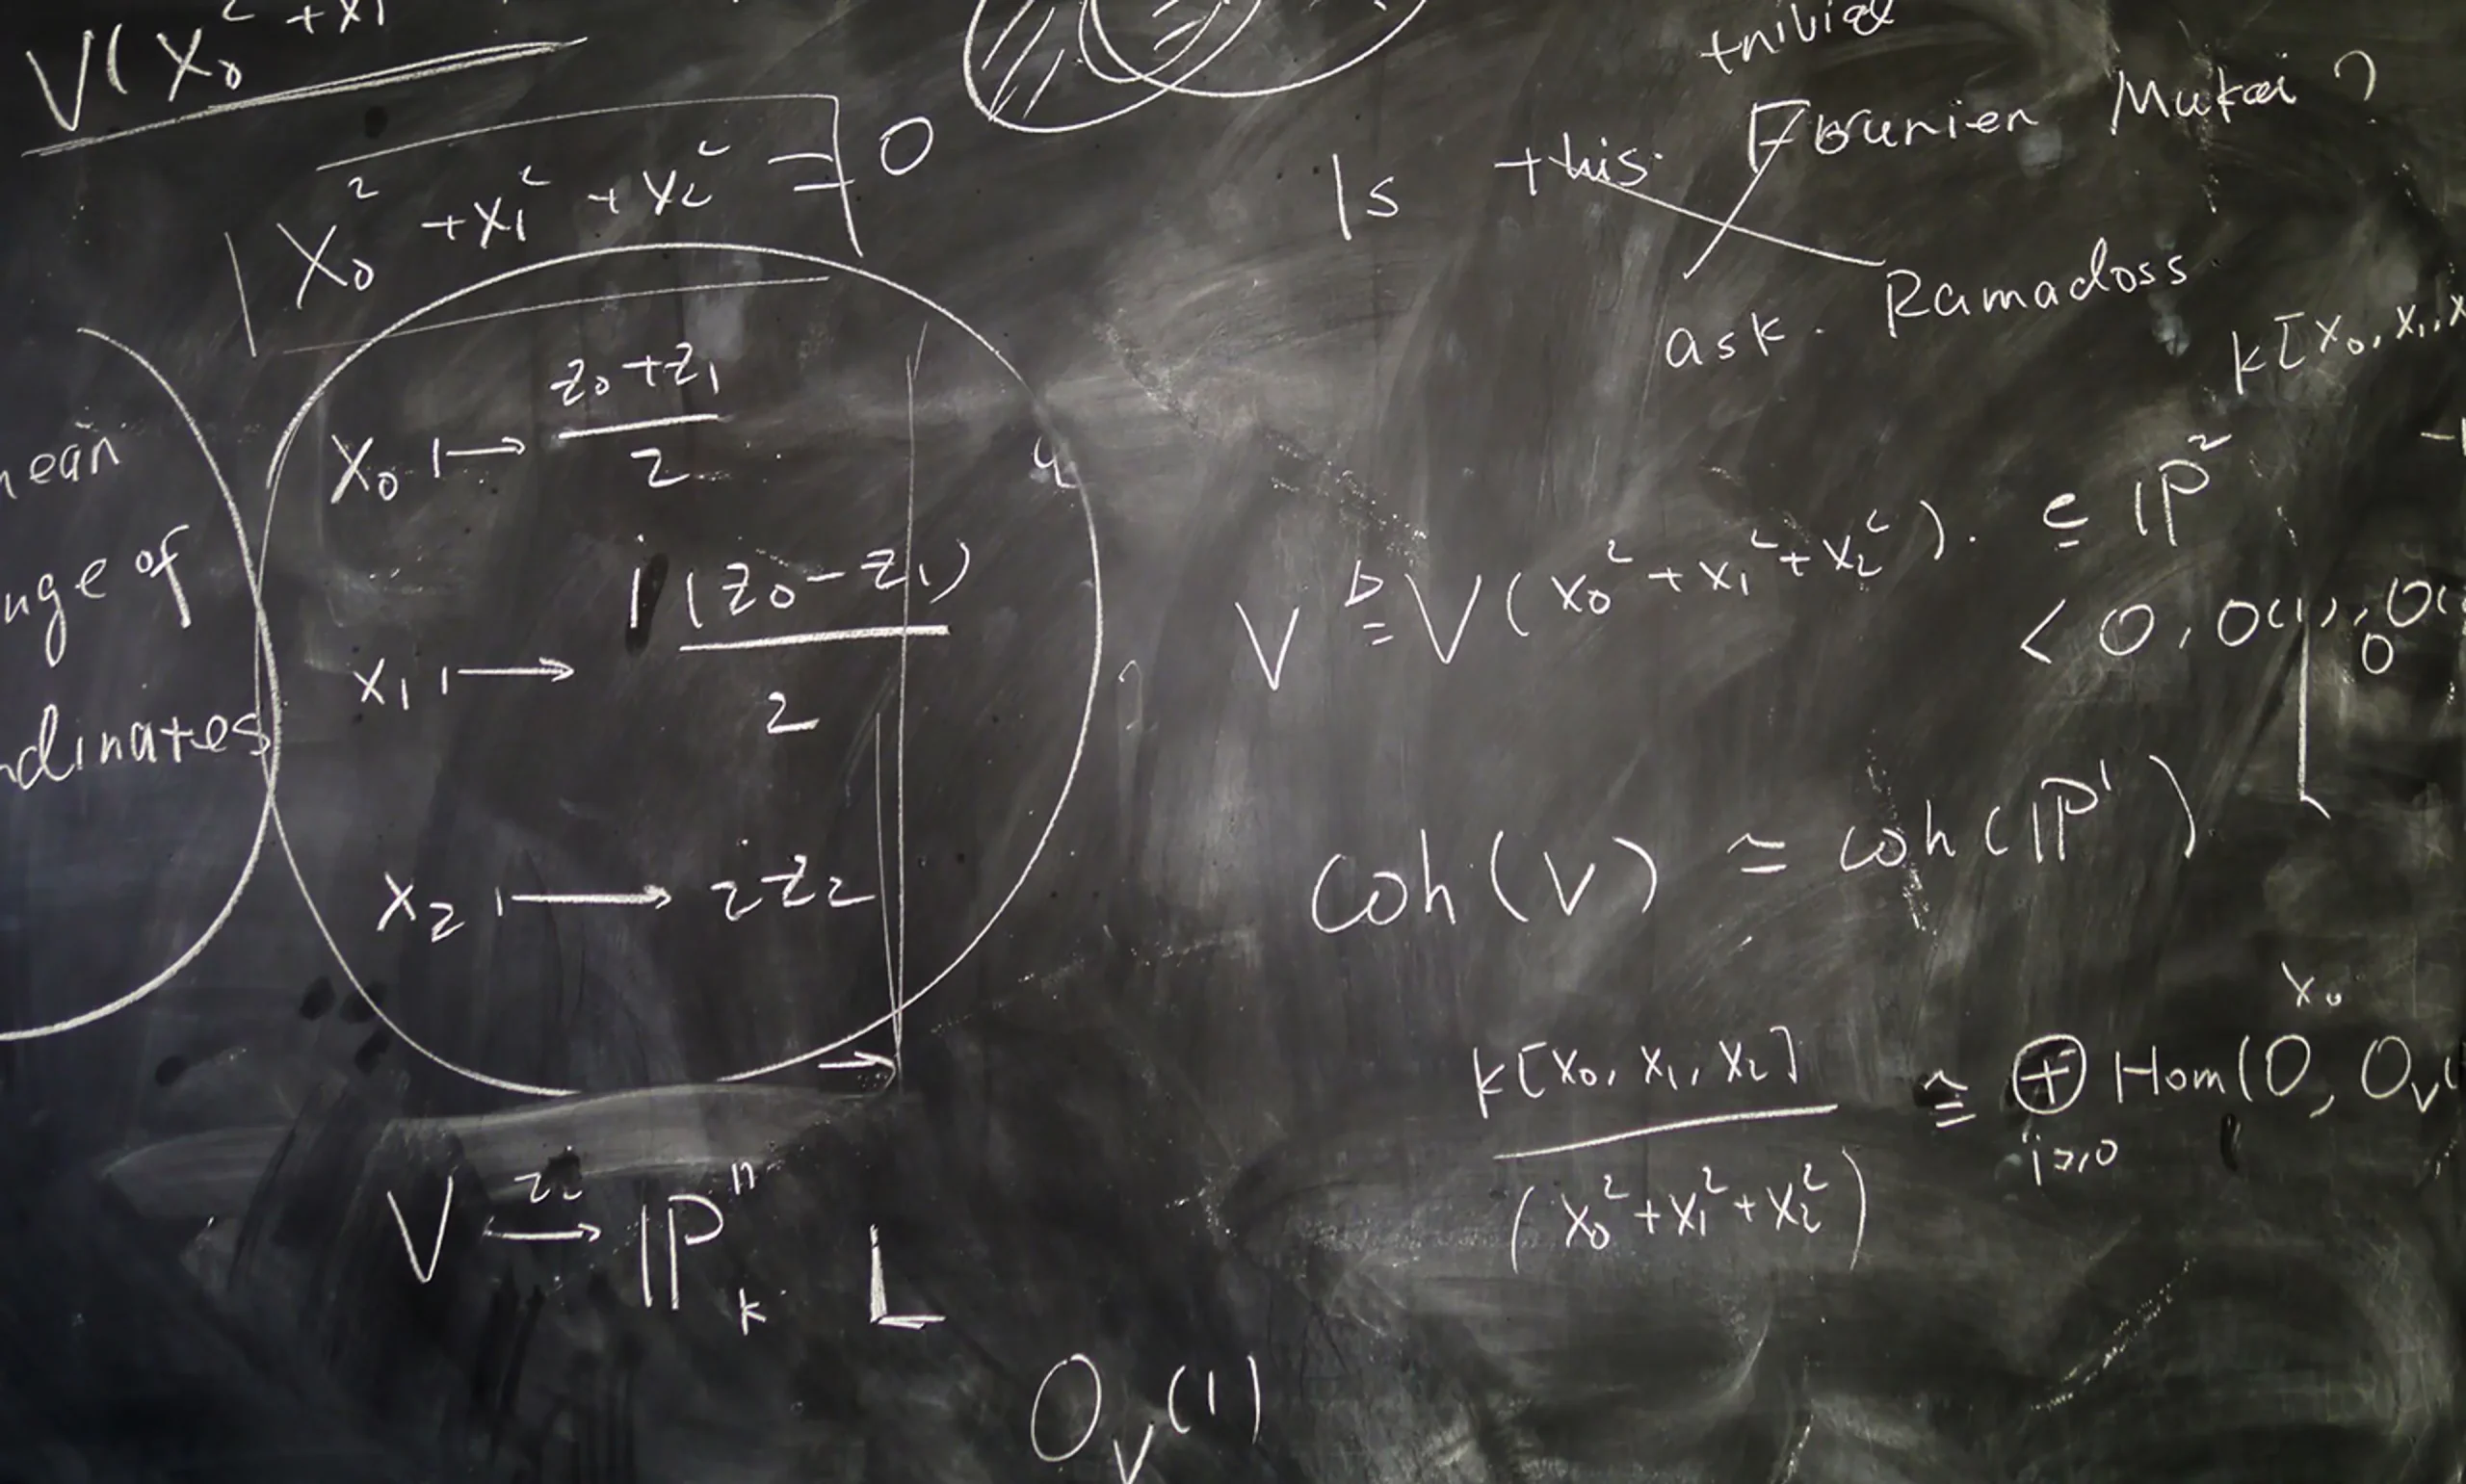 V(X₀² + X₁
X₀² + X₁² + X₂² = 0
nean
nge of
dinates
X₀ ↦ (z₀+z₁)/2
X₁ ↦ i(z₀-z₁)/2
X₂ ↦ zz₂
V → ℙⁿₖ L
O_V(1)
trivial
Is this Fourien Mukai ?
ask. Ramadoss
k[X₀, X₁, X
V ≅ V(X₀² + X₁² + X₂²). ⊆ ℙ²
< O, O(1), O(
O
Coh(V) ≃ coh(ℙ¹)
X₀
k[X₀, X₁, X₂]/(X₀² + X₁² + X₂²) ≅ ⊕ i≥0 Hom(O, O_V(